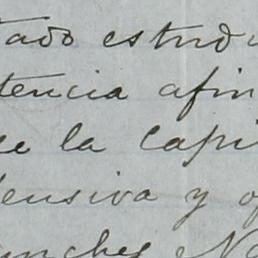 tado estud
tencia afin
de la Capi
fensiva y of
nches